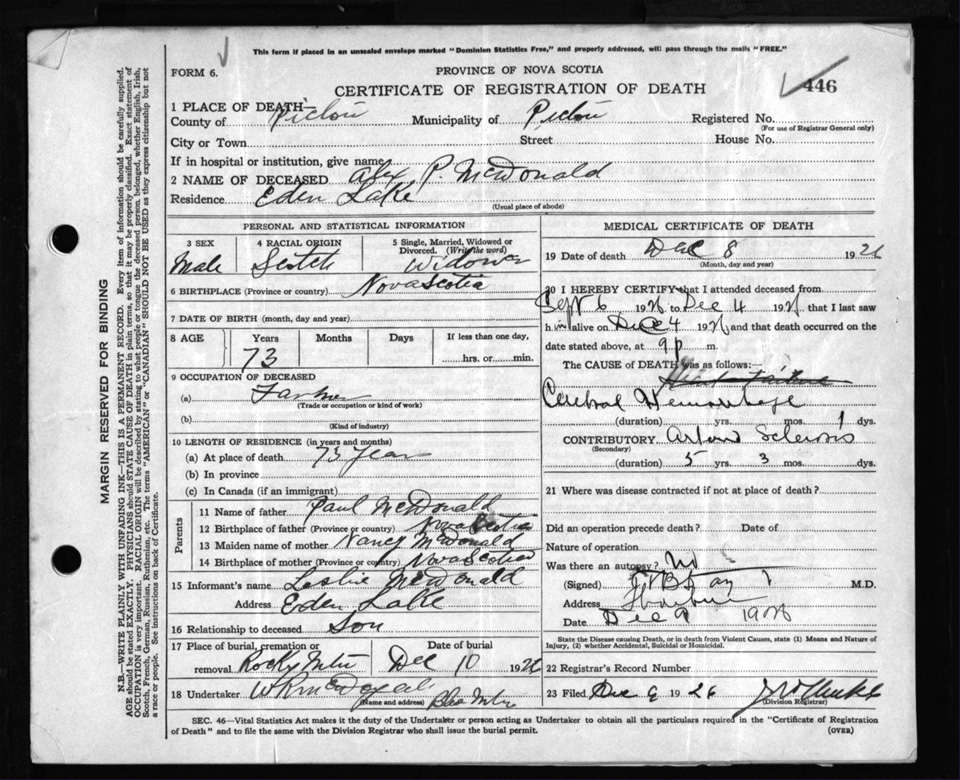 This form if placed in an unsealed envelope marked "Dominion Statistics Free," and properly addressed, will pass through the mails "FREE."
FORM 6.
PROVINCE OF NOVA SCOTIA
CERTIFICATE OF REGISTRATION OF DEATH
446
1 PLACE OF DEATH—
County of Pictou Municipality of Pictou Registered No.
(For use of Registrar General only)
City or Town Street House No.
If in hospital or institution, give name
2 NAME OF DECEASED Alex P. McDonald
Residence Eden Lake
(Usual place of abode)
PERSONAL AND STATISTICAL INFORMATION
3 SEX 4 RACIAL ORIGIN 5 Single, Married, Widowed or Divorced. (Write the word)
Male Scotch Widower
6 BIRTHPLACE (Province or country) Nova Scotia
7 DATE OF BIRTH (month, day and year)
8 AGE Years Months Days If less than one day,
73 hrs. or min.
9 OCCUPATION OF DECEASED
(a) Farmer
(Trade or occupation or kind of work)
(b)
(Kind of industry)
10 LENGTH OF RESIDENCE (in years and months)
(a) At place of death 73 Years
(b) In province
(c) In Canada (if an immigrant)
Parents
11 Name of father Paul McDonald
12 Birthplace of father (Province or country) Nova Scotia
13 Maiden name of mother Nancy McDonald
14 Birthplace of mother (Province or country) Nova Scotia
15 Informant's name Leslie McDonald
Address Eden Lake
16 Relationship to deceased Son
17 Place of burial, cremation or removal Date of burial
Rocky Mtn Dec 10 1926
18 Undertaker
(Name and address) Blue Mtn
MEDICAL CERTIFICATE OF DEATH
19 Date of death Dec 8 1926
(Month, day and year)
20 I HEREBY CERTIFY that I attended deceased from
Sept 6 1926 to Dec 4 1926 that I last saw
him alive on Dec 4 1926 and that death occurred on
date stated above, at 9 p m.
The CAUSE OF DEATH was as follows:
Heart Failure
Cerebral Hemorrhage
(duration) yrs. mos. 1 dys.
CONTRIBUTORY Sclerosis
(Secondary)
(duration) 5 yrs. 3 mos. dys.
21 Where was disease contracted if not at place of death?
Did an operation precede death? Date of
Nature of operation
Was there an autopsy? No
(Signed) M.D.
Address
Date Dec 9 1926
State the Disease causing Death, or in death from Violent Causes, state (1) Means and Nature of Injury, (2) whether Accidental, Suicidal or Homicidal.
22 Registrar's Record Number
23 Filed Dec 9 1926
(Division Registrar)
SEC. 46—Vital Statistics Act makes it the duty of the Undertaker or person acting as Undertaker to obtain all the particulars required in the "Certificate of Registration
of Death" and to file the same with the Division Registrar who shall issue the burial permit. (OVER)
MARGIN RESERVED FOR BINDING
N.B.—WRITE PLAINLY WITH UNFADING INK—THIS IS A PERMANENT RECORD. Every item of information should be carefully supplied.
AGE should be stated EXACTLY. PHYSICIANS should STATE CAUSE OF DEATH in plain terms, so that it may be properly classified. Exact statement of
OCCUPATION is very important. RACIAL ORIGIN will be described by stating to what people or tongue the deceased person belonged, whether English, Irish,
Scotch, French, German, Russian, Ruthenian, etc. The terms "AMERICAN" or "CANADIAN" SHOULD NOT BE USED as they express citizenship but not
a race or people. See instructions on back of Certificate.